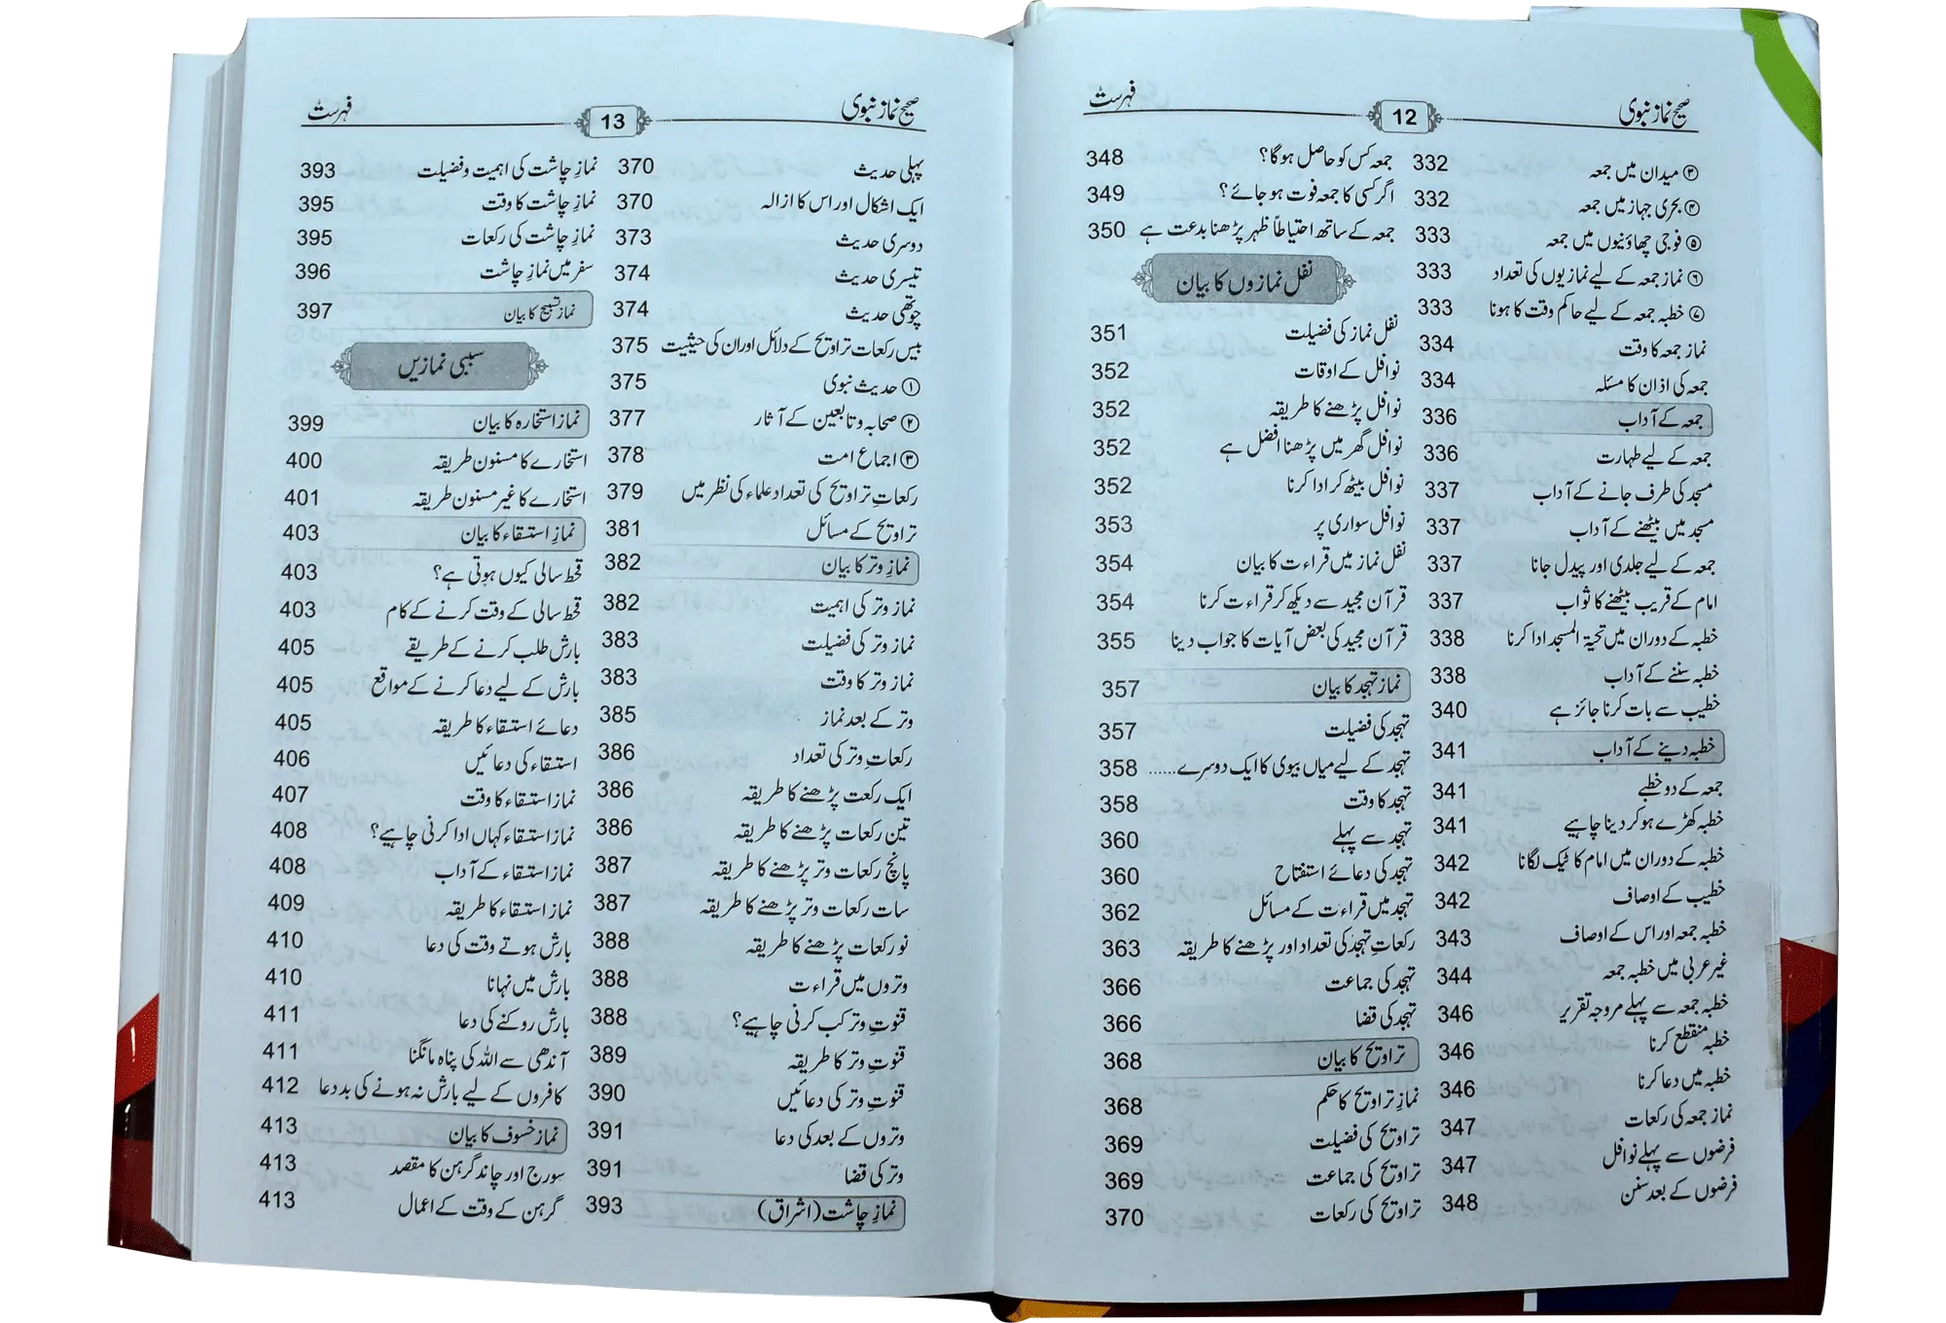 صحیح نماز نبوی 12 فہرست
③ میدان میں جمعہ 332
④ بحری جہاز میں جمعہ 332
⑤ فوجی چھاؤنیوں میں جمعہ 333
⑥ نماز جمعہ کے لیے نمازیوں کی تعداد 333
⑦ خطبہ جمعہ کے لیے حاکم وقت کا ہونا 333
نماز جمعہ کا وقت 334
جمعہ کی اذان کا مسئلہ 334
جمعہ کے آداب 336
جمعہ کے لیے طہارت 336
مسجد کی طرف جانے کے آداب 337
مسجد میں بیٹھنے کے آداب 337
جمعہ کے لیے جلدی اور پیدل جانا 337
امام کے قریب بیٹھنے کا ثواب 337
خطبہ کے دوران میں تحیۃ المسجد ادا کرنا 338
خطبہ سننے کے آداب 338
خطیب سے بات کرنا جائز ہے 340
خطبہ دینے کے آداب 341
جمعہ کے دو خطبے 341
خطبہ کھڑے ہو کر دینا چاہیے 341
خطبہ کے دوران میں امام کا ٹیک لگانا 342
خطیب کے اوصاف 342
خطبہ جمعہ اور اس کے اوصاف 343
غیر عربی میں خطبہ جمعہ 344
خطبہ جمعہ سے پہلے مروجہ تقریر 346
خطبہ منقطع کرنا 346
خطبہ میں دعا کرنا 346
نماز جمعہ کی رکعات 347
فرضوں سے پہلے نوافل 347
فرضوں کے بعد سنن 348
جمعہ کس کو حاصل ہوگا؟ 348
اگر کسی کا جمعہ فوت ہو جائے؟ 349
جمعہ کے ساتھ احتیاطاً ظہر پڑھنا بدعت ہے 350
نفل نمازوں کا بیان
نفل نماز کی فضیلت 351
نوافل کے اوقات 352
نوافل پڑھنے کا طریقہ 352
نوافل گھر میں پڑھنا افضل ہے 352
نوافل بیٹھ کر ادا کرنا 352
نوافل سواری پر 353
نفل نماز میں قراءت کا بیان 354
قرآن مجید سے دیکھ کر قراءت کرنا 354
قرآن مجید کی بعض آیات کا جواب دینا 355
نماز تہجد کا بیان 357
تہجد کی فضیلت 357
تہجد کے لیے میاں بیوی کا ایک دوسرے...... 358
تہجد کا وقت 358
تہجد سے پہلے 360
تہجد کی دعائے استفتاح 360
تہجد میں قراءت کے مسائل 362
رکعاتِ تہجد کی تعداد اور پڑھنے کا طریقہ 363
تہجد کی جماعت 366
تہجد کی قضا 366
تراویح کا بیان 368
نمازِ تراویح کا حکم 368
تراویح کی فضیلت 369
تراویح کی جماعت 369
تراویح کی رکعات 370
صحیح نماز نبوی 13 فہرست
پہلی حدیث 370
ایک اشکال اور اس کا ازالہ 370
دوسری حدیث 373
تیسری حدیث 374
چوتھی حدیث 374
بیس رکعات تراویح کے دلائل اور ان کی حیثیت 375
① حدیث نبوی 375
② صحابہ و تابعین کے آثار 377
③ اجماع امت 378
رکعاتِ تراویح کی تعداد علماء کی نظر میں 379
تراویح کے مسائل 381
نمازِ وتر کا بیان 382
نماز وتر کی اہمیت 382
نماز وتر کی فضیلت 383
نماز وتر کا وقت 383
وتر کے بعد نماز 385
رکعاتِ وتر کی تعداد 386
ایک رکعت پڑھنے کا طریقہ 386
تین رکعات پڑھنے کا طریقہ 386
پانچ رکعات وتر پڑھنے کا طریقہ 387
سات رکعات وتر پڑھنے کا طریقہ 387
نو رکعات پڑھنے کا طریقہ 388
وتروں میں قراءت 388
قنوتِ وتر کب کرنی چاہیے؟ 388
قنوتِ وتر کا طریقہ 389
قنوتِ وتر کی دعائیں 390
وتروں کے بعد کی دعا 391
وتر کی قضا 391
نمازِ چاشت (اشراق) 393
نمازِ چاشت کی اہمیت و فضیلت 393
نمازِ چاشت کا وقت 395
نمازِ چاشت کی رکعات 395
سفر میں نمازِ چاشت 396
نماز تسبیح کا بیان 397
سببی نمازیں
نماز استخارہ کا بیان 399
استخارے کا مسنون طریقہ 400
استخارے کا غیر مسنون طریقہ 401
نمازِ استسقاء کا بیان 403
قحط سالی کیوں ہوتی ہے؟ 403
قحط سالی کے وقت کرنے کے کام 403
بارش طلب کرنے کے طریقے 405
بارش کے لیے دعا کرنے کے مواقع 405
دعائے استسقاء کا طریقہ 405
استسقاء کی دعائیں 406
نماز استسقاء کا وقت 407
نماز استسقاء کہاں ادا کرنی چاہیے؟ 408
نماز استسقاء کے آداب 408
نماز استسقاء کا طریقہ 409
بارش ہوتے وقت کی دعا 410
بارش میں نہانا 410
بارش روکنے کی دعا 411
آندھی سے اللہ کی پناہ مانگنا 411
کافروں کے لیے بارش نہ ہونے کی بددعا 412
نماز خسوف کا بیان 413
سورج اور چاند گرہن کا مقصد 413
گرہن کے وقت کے اعمال 413